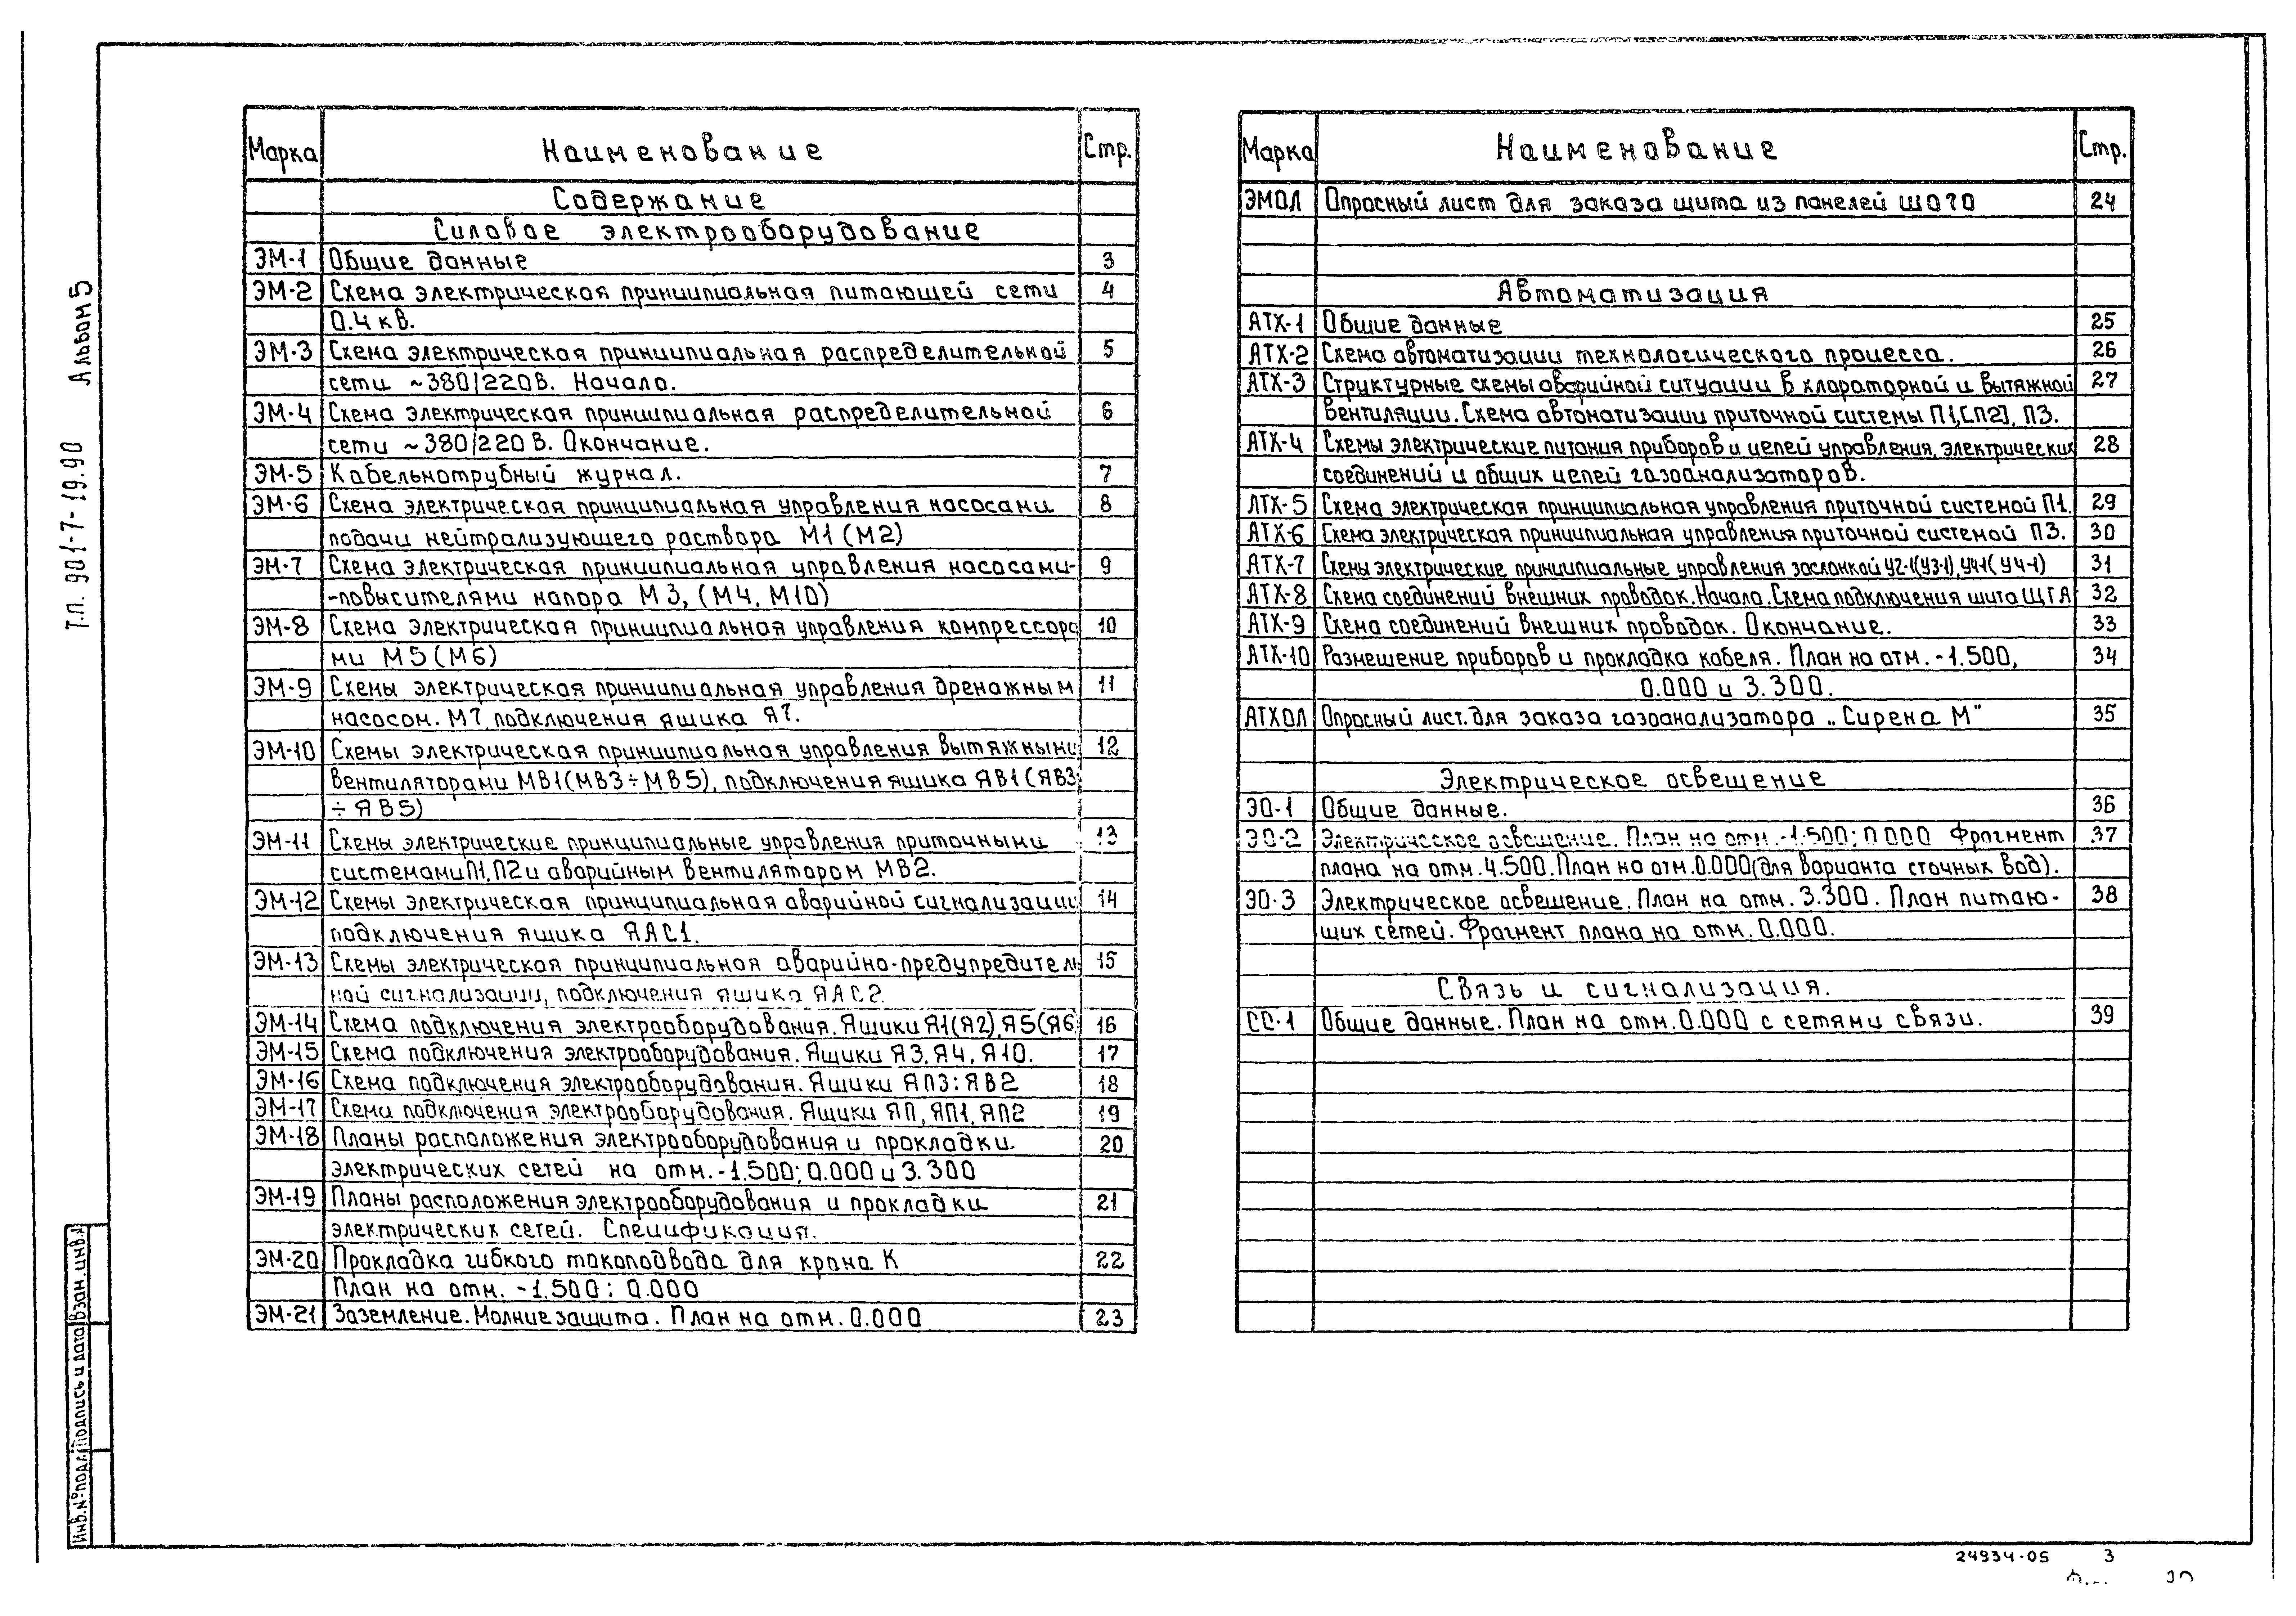 Т.П. 901-7-19.90 Альбом 5
Марка Наименование Стр.
Содержание
Силовое электрооборудование
ЭМ-1 Общие данные 3
ЭМ-2 Схема электрическая принципиальная питающей сети 4
0.4 кв.
ЭМ-3 Схема электрическая принципиальная распределительной 5
сети ~380/220В. Начало.
ЭМ-4 Схема электрическая принципиальная распределительной 6
сети ~380/220 В. Окончание.
ЭМ-5 Кабельнотрубный журнал. 7
ЭМ-6 Схема электрическая принципиальная управления насосами 8
подачи нейтрализующего раствора М1 (М2)
ЭМ-7 Схема электрическая принципиальная управления насосами- 9
-повысителями напора М3, (М4, М10)
ЭМ-8 Схема электрическая принципиальная управления компрессора 10
ми М5 (М6)
ЭМ-9 Схемы электрическая принципиальная управления дренажным 11
насосом. М7, подключения ящика Я7.
ЭМ-10 Схемы электрическая принципиальная управления вытяжными 12
вентиляторами МВ1(МВ3÷МВ5), подключения ящика ЯВ1 (ЯВ3
÷ ЯВ5)
ЭМ-11 Схемы электрические принципиальные управления приточными 13
системами П1, П2 и аварийным вентилятором МВ2.
ЭМ-12 Схемы электрическая принципиальная аварийной сигнализации 14
подключения ящика ЯАС1.
ЭМ-13 Схемы электрическая принципиальная аварийно-предупредитель 15
ной сигнализации, подключения ящика ЯАС2.
ЭМ-14 Схема подключения электрооборудования. Ящики Я1(Я2), Я5(Я6 16
ЭМ-15 Схема подключения электрооборудования. Ящики Я3, Я4, Я10. 17
ЭМ-16 Схема подключения электрооборудования. Ящики ЯП3; ЯВ2 18
ЭМ-17 Схема подключения электрооборудования. Ящики ЯП, ЯП1, ЯП2 19
ЭМ-18 Планы расположения электрооборудования и прокладки. 20
электрических сетей на отм. -1.500; 0.000 и 3.300
ЭМ-19 Планы расположения электрооборудования и прокладки 21
электрических сетей. Спецификация.
ЭМ-20 Прокладка гибкого токоподвода для крана К 22
План на отм. -1.500; 0.000
ЭМ-21 Заземление. Молниезащита. План на отм. 0.000 23
Марка Наименование Стр.
ЭМОЛ Опросный лист для заказа щита из панелей ЩО70 24
Автоматизация
АТХ-1 Общие данные 25
АТХ-2 Схема автоматизации технологического процесса. 26
АТХ-3 Структурные схемы аварийной ситуации в хлораторной и вытяжной 27
вентиляции. Схема автоматизации приточной системы П1, [П2], П3.
АТХ-4 Схемы электрические питания приборов и цепей управления, электрических 28
соединений и общих цепей газоанализаторов.
АТХ-5 Схема электрическая принципиальная управления приточной системой П1. 29
АТХ-6 Схема электрическая принципиальная управления приточной системой П3. 30
АТХ-7 Схемы электрические принципиальные управления заслонкой У2-1(У3-1), У4-1( У4-1) 31
АТХ-8 Схема соединений внешних проводок. Начало. Схема подключения щита ЩГА 32
АТХ-9 Схема соединений внешних проводок. Окончание. 33
АТХ-10 Размещение приборов и прокладка кабеля. План на отм. -1.500, 34
0.000 и 3.300.
АТХОЛ Опросный лист. для заказа газоанализатора „Сирена М" 35
Электрическое освещение
ЭО-1 Общие данные. 36
ЭО-2 Электрическое освещение. План на отм. -1.500; 0.000 Фрагмент 37
плана на отм. 4.500. План на отм. 0.000 (для варианта сточных вод).
ЭО-3 Электрическое освещение. План на отм. 3.300. План питаю- 38
щих сетей. Фрагмент плана на отм. 0.000.
Связь и сигнализация.
СС-1 Общие данные. План на отм. 0.000 с сетями связи. 39
Инв. № подл. Подпись и дата Взам. инв. №
24934-05 3